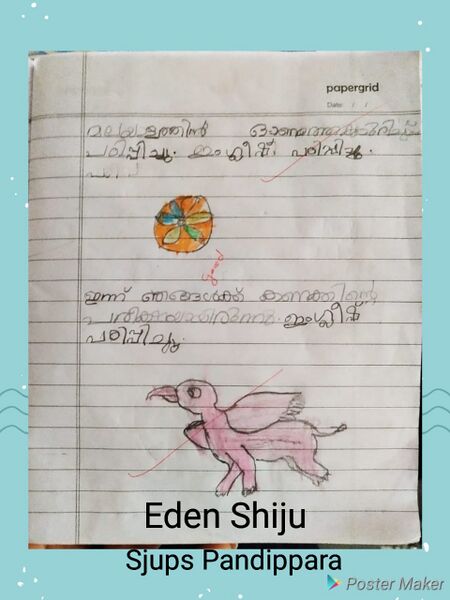 papergrid
Date: / /
മലയാളത്തിൽ
പഠിപ്പിച്ചു. ഇംഗ്ലീഷ് പഠിപ്പിച്ചു.
good
ഇന്ന് ഞങ്ങൾക്ക് കണക്കിന്റെ
പരീക്ഷയായിരുന്നു. ഇംഗ്ലീഷ്
പഠിപ്പിച്ചു.
Eden Shiju
Sjups Pandippara
Poster Maker